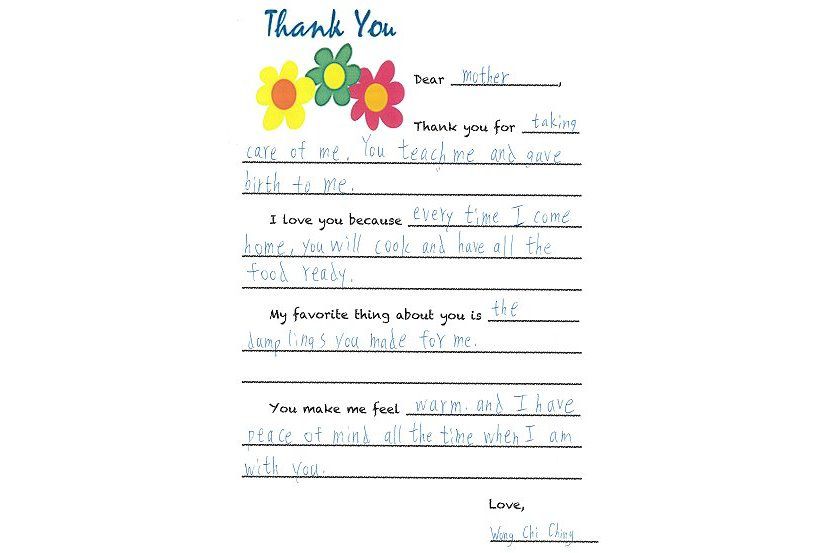 Thank You
Dear mother,
Thank you for taking
care of me. You teach me and gave
birth to me.
I love you because every time I come
home, you will cook and have all the
food ready.
My favorite thing about you is the
dumplings you made for me.
You make me feel warm. and I have
peace of mind all the time when I am
with you.
Love,
Wong Chi Ching